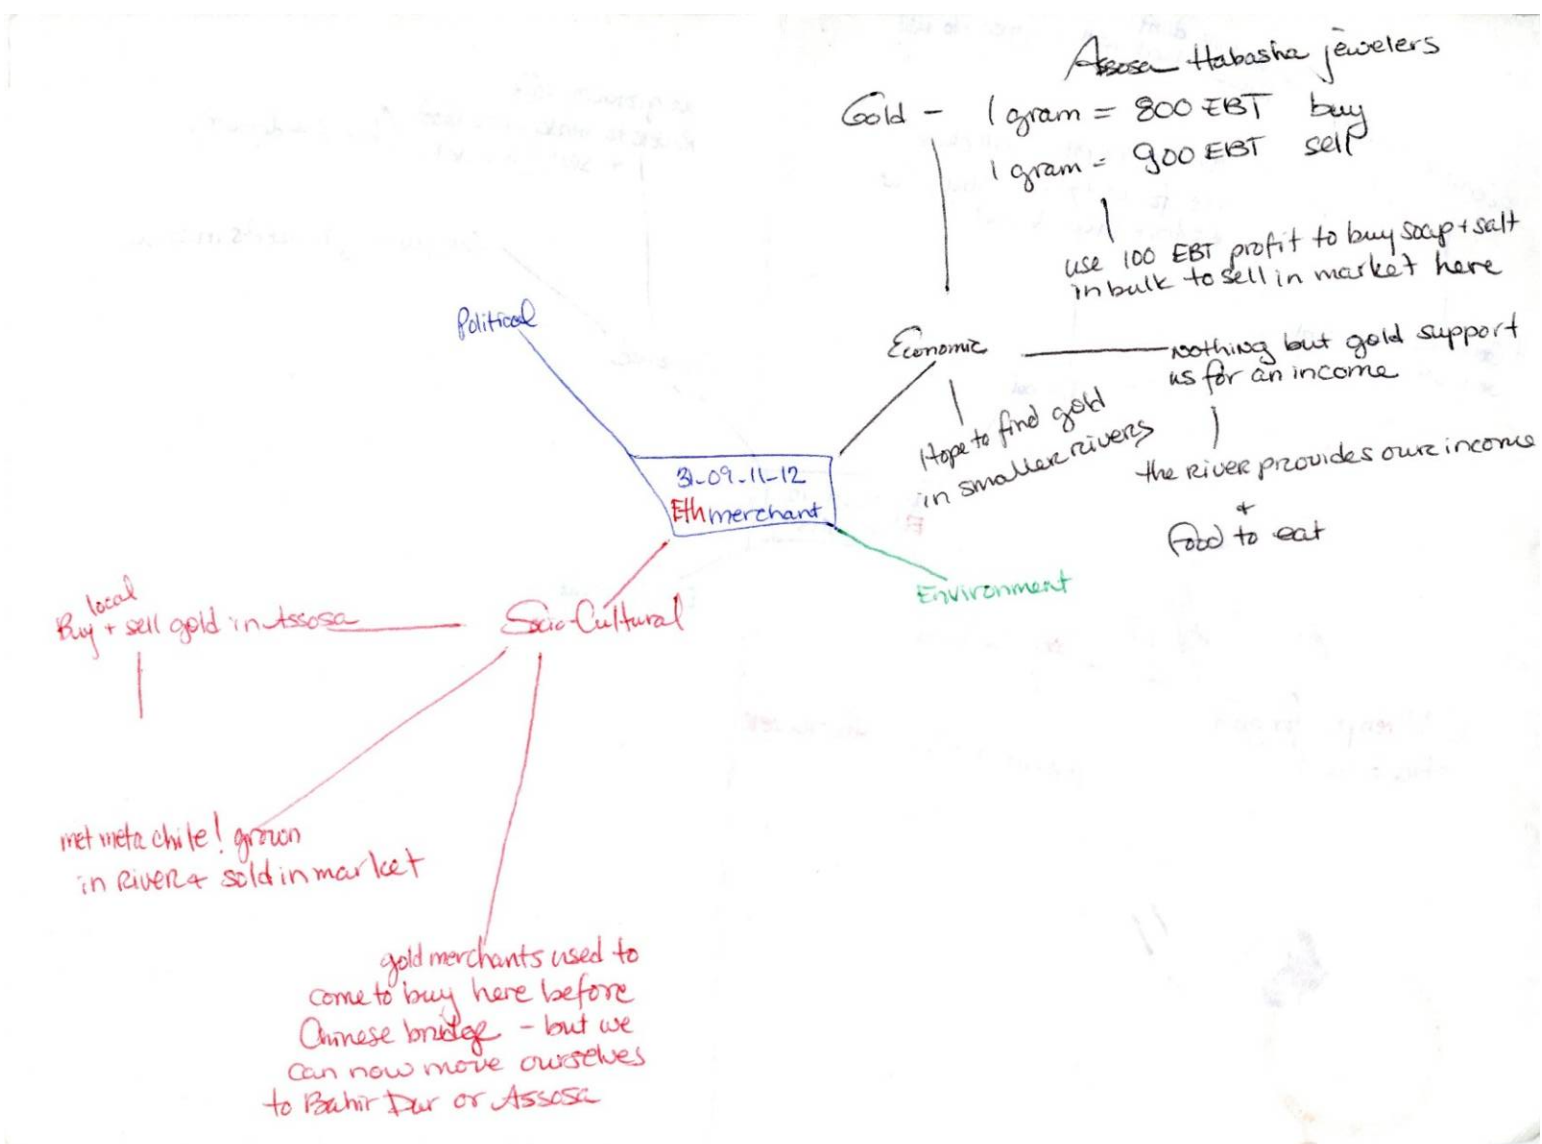 Assosa Habasha jewelers
Gold - 1 gram = 800 EBT buy
1 gram = 900 EBT sell
use 100 EBT profit to buy soap + salt
in bulk to sell in market here
Political
Economic
Nothing but gold support
us for an income
Hope to find gold
in smaller rivers
the River provides our income
+
food to eat
31-09-11-12
Eth merchant
Environment
Socio-Cultural
local
Buy + sell gold in Assosa
met meta chile! grown
in River + sold in market
gold merchants used to
come to buy here before
Chinese bridge - but we
can now move ourselves
to Bahir Dar or Assosa